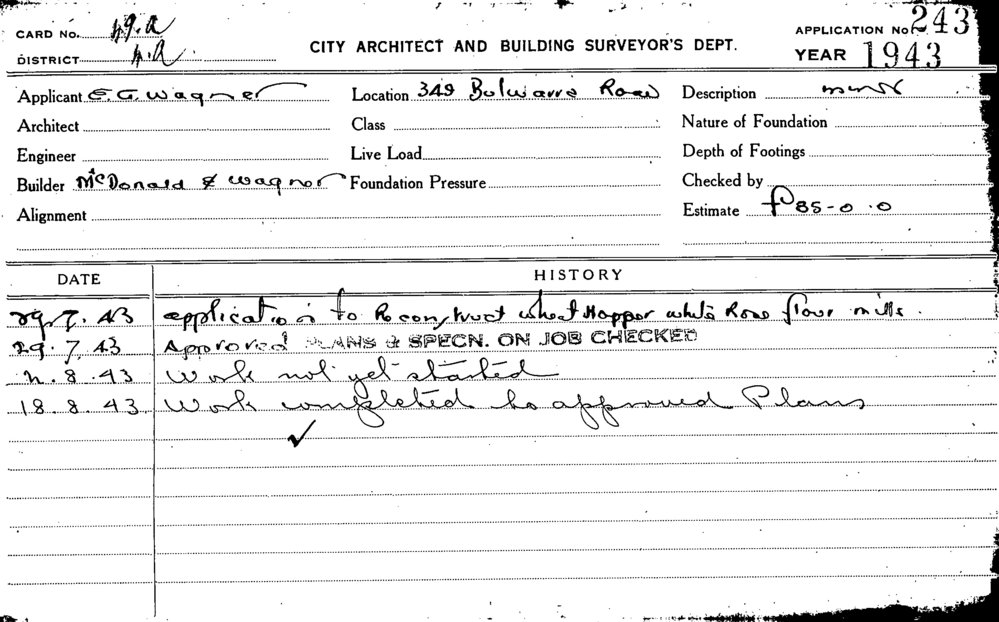 CARD No. 49.A
APPLICATION No. 243
DISTRICT
CITY ARCHITECT AND BUILDING SURVEYOR'S DEPT.
YEAR 1943
Applicant E. G. Wagner Location 349 Bulwarra Road Description minor
Architect Class Nature of Foundation
Engineer Live Load Depth of Footings
Builder McDonald & Wagnor Foundation Pressure Checked by
Alignment Estimate £85-0.0
DATE HISTORY
29.7.43 application to Reconstruct wheat Hopper white Rose flour mills.
29.7.43 Approved PLANS & SPECN. ON JOB CHECKED
8.43 Work not yet started
18.8.43 Work completed to approved Plans
✓